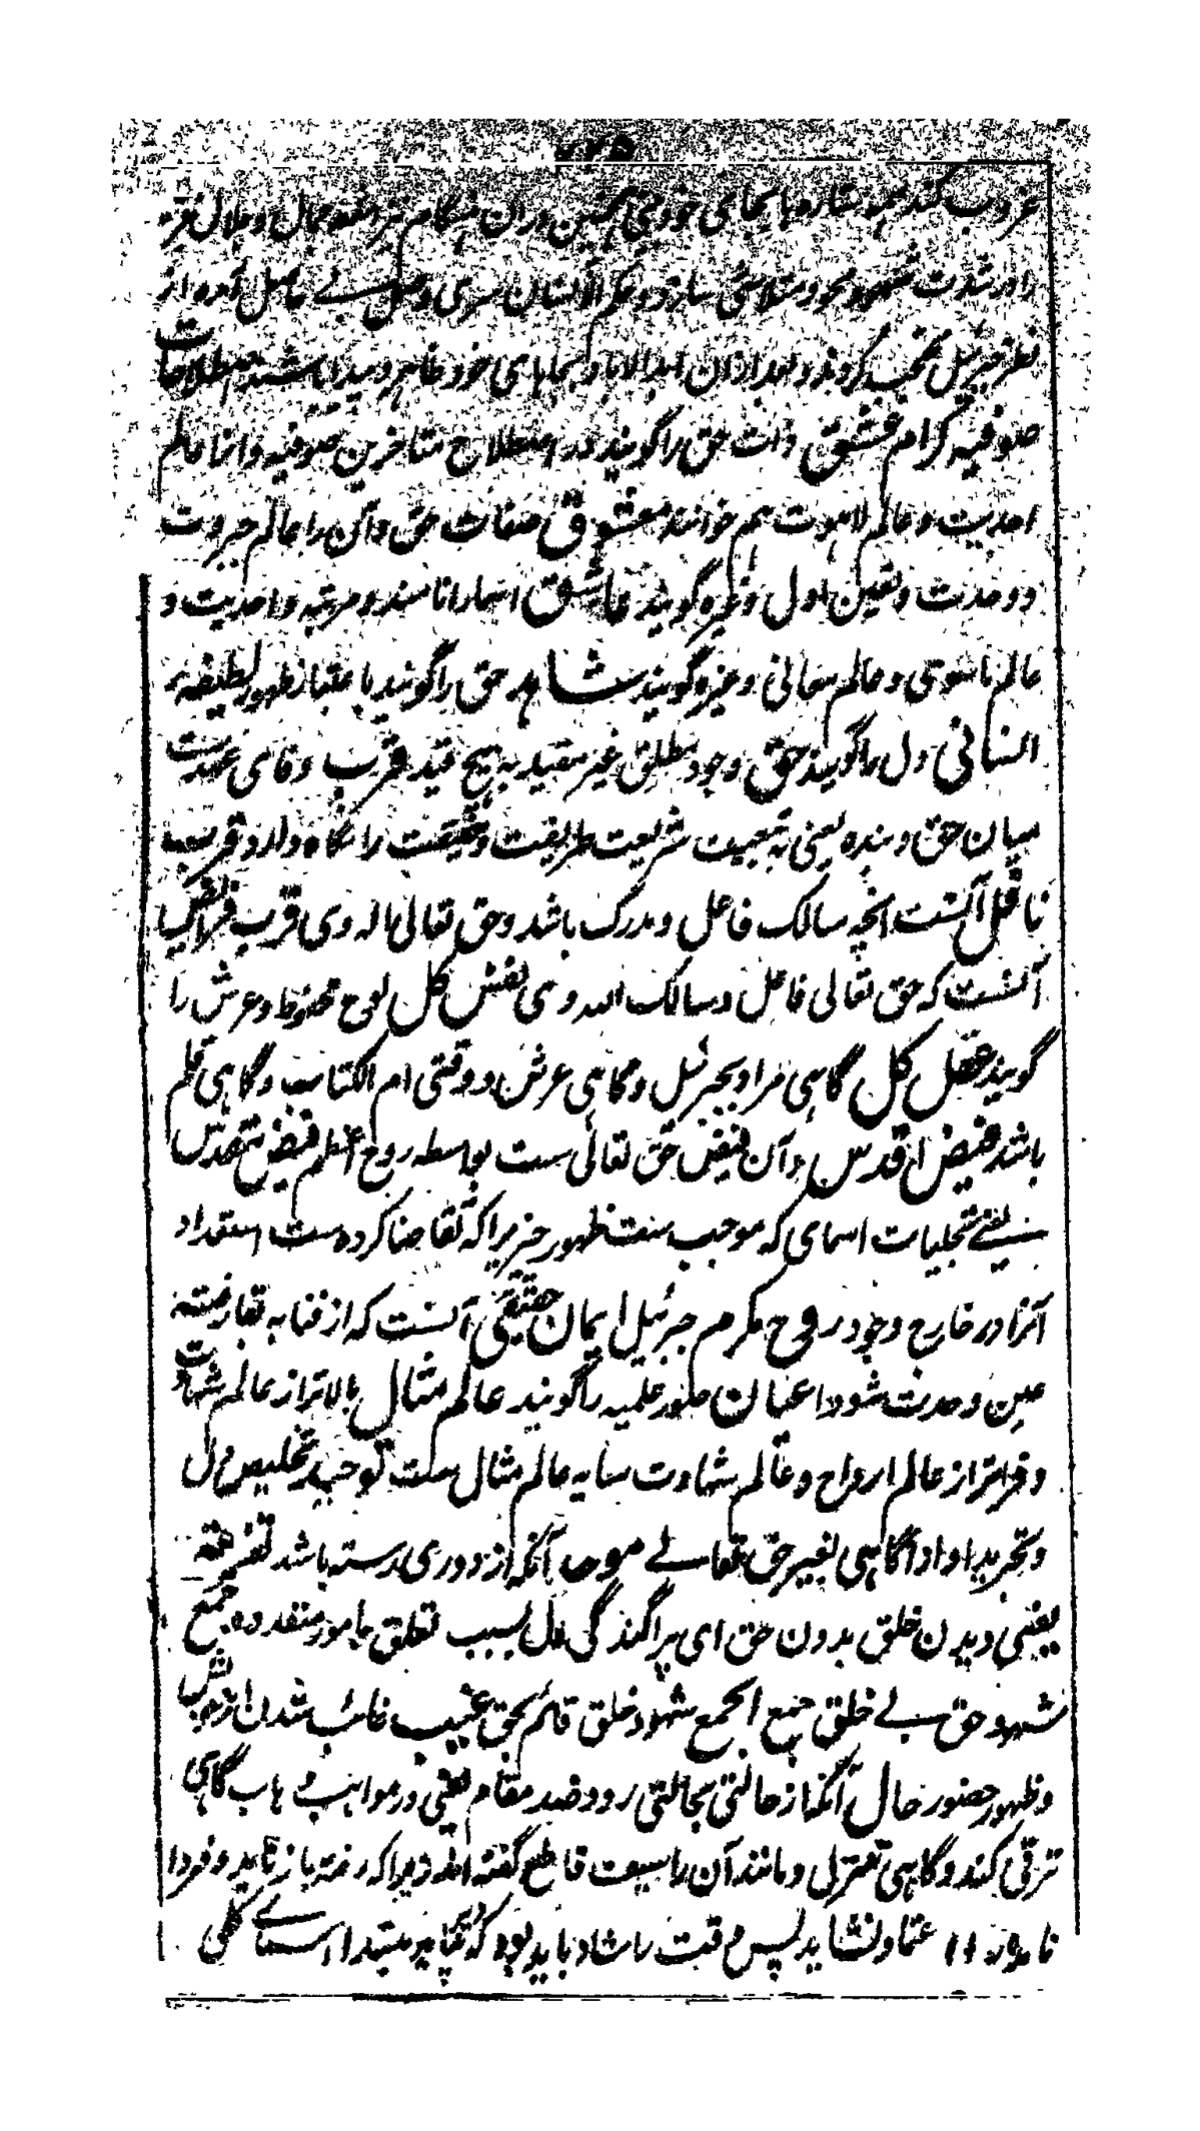 غروب کند همه ستاره ها بجای خود می همین دران هنگام جمال و جلال
را در شدت شهود محو و متلاشی سازد و حکم الانسان سری وصل بے حاصل آمده از
نظر جبرئیل محجب گردند و بعد ازان ابد الاباد بجاهای خود ظاهر و پیدا باشند اصطلاحات
صوفیه کرام عشق ذات حق را گویند در اصطلاح متاخرین صوفیه و انرا عالم
احدیت و عالم لاهوت هم خوانند معشوق صفات حق و آن را عالم جبروت
و وحدت و تعین اول و غیره گویند عاشق اسما را نامند و مرتبه واحدیت و
عالم ناسوتی و عالم معانی و غیره گویند شاهد حق را گویند باعتبار ظهور لطیفهٔ
انسانی دل را گویند حق وجود مطلق غیر مقید به هیچ قید قرب وفای عهدست
میان حق و بنده یعنی به تبعیت شریعت طریقت و حقیقت را نگاه دارد قرب
نافل آنست انچه سالک فاعل و مدرک باشد و حق تعالی اله وی قرب فرائض
آنست که حق تعالی فاعل و سالک اله وی نفس کل لوح محفوظ و عرش را
گویند عقل کل گاهی مراد بجبرئیل و گاهی عرش و وقتی ام الکتاب و گاهی قلم
باشد فیض اقدس و آن فیض حق تعالی ست بواسطه روح اعظم فیض مقدس
یعنے تجلیات اسمای که موجب ست ظهور چیزیرا که تقاضا کرده ست استعداد
آنرا در خارج وجود روح مکرم جبرئیل ایمان حقیقی آنست که از فنا به تعارفته
عین وحدت شود اعیان صور علمیه را گویند عالم مثال بالاتر از عالم شهادت
و فراتر از عالم ارواح و عالم شهادت سایه عالم مثال ست توحید تخلیص دل
و تجرید او از آگاهی بغیر حق تعالے موحد آنکه از دوری رسته باشد تفرقه
یعنی دیدن خلق بدون حق ای پراگندگی دل بسبب تعلق بامور متعدده جمع
شهود حق بے خلق جمع الجمع شهود خلق قائم بحق غیبت غائب شدن از خویش
و ظهور حضور حال آنکه از حالتی بحالتی رود ضد مقام یعنی در مواهب وهاب گاهی
ترقی کند و گاهی تنزلی و مانند آن را سیف قاطع گفته اند زیرا که رفته باز نیاید و فردا
اعتماد نشاید پس وقت را شاد باید بود که